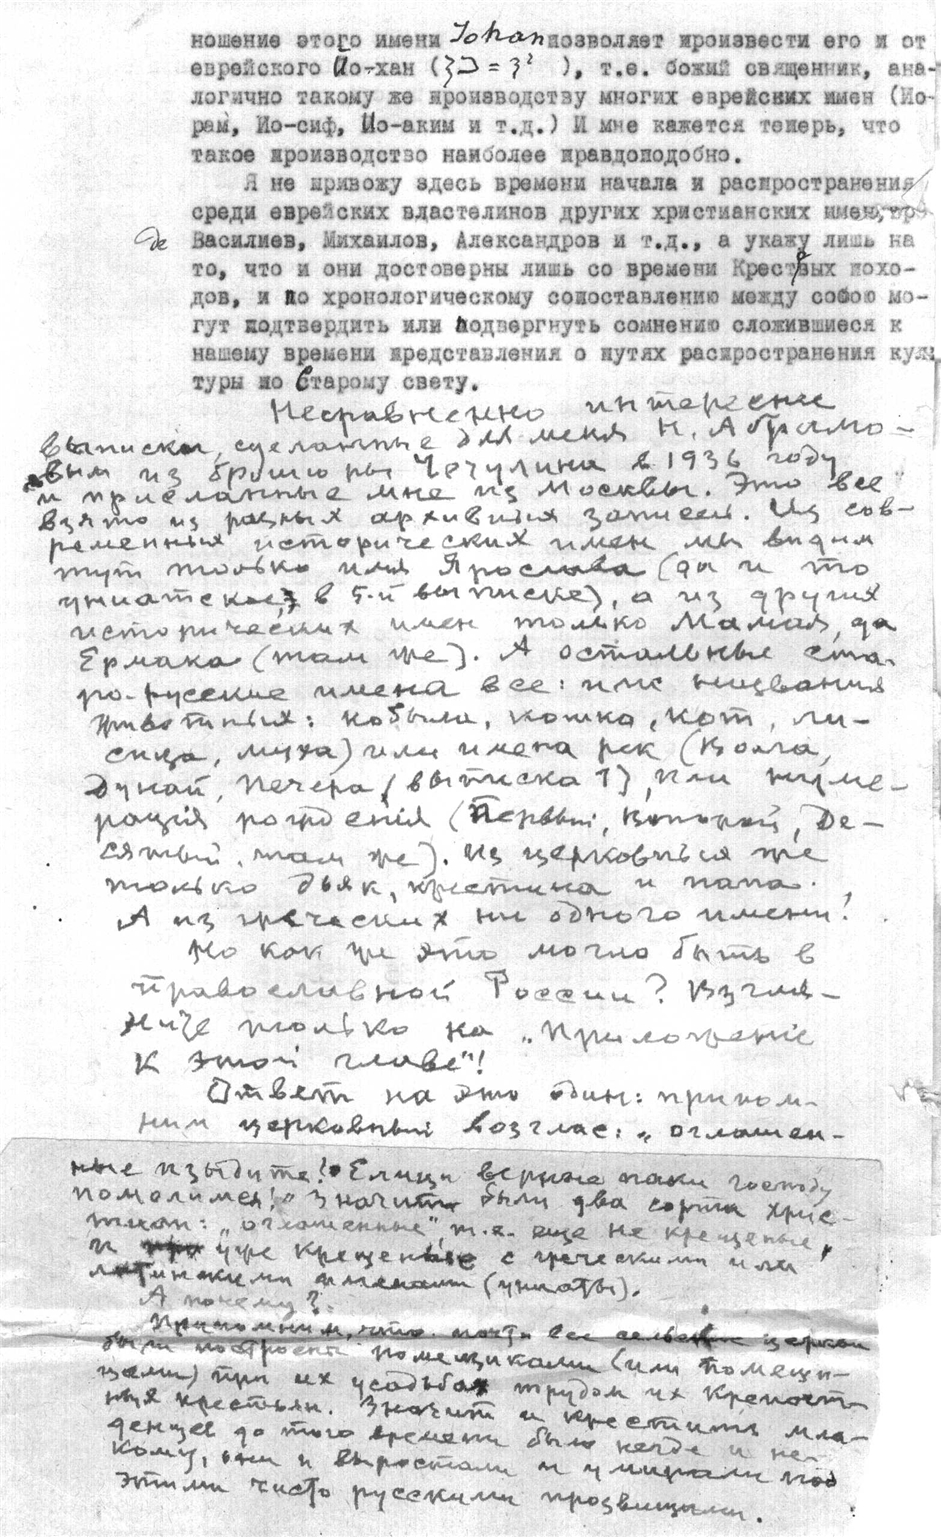 ношение этого имени Iohan позволяет произвести его и от
еврейского Ио-хан ( = ), т.е. божий священник, ана-
логично такому же производству многих еврейских имен (Ио-
рам, Ио-сиф, Ио-аким и т.д.) И мне кажется теперь, что
такое производство наиболее правдоподобно.
Я не привожу здесь времени начала и распространения
среди еврейских властелинов других христианских имен,
де Василиев, Михаилов, Александров и т.д., а укажу лишь на
то, что и они достоверны лишь со времени Крестовых похо-
дов, и по хронологическому сопоставлению между собою мо-
гут подтвердить или подвергнуть сомнению сложившиеся к
нашему времени представления о путях распространения куль
туры по Старому свету.
Несравненно интереснее
выписки, сделанные для меня Н. Абрамо-
вым из брошюры Чечулина в 1936 году
и присланные мне из Москвы. Это все
взято из разных архивных записей. Из сов-
ременных исторических имен мы видим
тут только имя Ярослава (да и то
униатское, в 5-й выписке), а из других
исторических имен только Мамая, да
Ермака (там же). А остальные ста-
ро-русские имена все: или названия
животных: кобыла, кошка, кот, ли-
сица, муха) или имена рек (Волга,
Дунай, Печера, (выписка 1), или нуме-
рація рожденія (Первый, Второй, Де-
сятый, там же). Из церковных же
только дьяк, крестина и папа.
А из греческих ни одного имени!
Но как же это могло быть в
православной России? Взгля-
ните только на „Приложеніе
к этой главе"!
Ответ на это один: припом-
ним церковный возглас: „оглашен-
ные изыдите! Елицы верние паки господу
помолимся!" Значит были два сорта хрис-
тиан: „оглашенные", т.е. еще не крещеные,
и уже крещеные с греческими или
латинскими именами (униаты).
А почему?
Припомним, что почти все сельские церкви
были построены помещиками (или помещи-
цами) при их усадьбах трудом их крепост-
ных крестьян. Значит и крестить мла-
денцев до того времени было негде и не-
кому, они и выростали и умирали под
этими чисто русскими прозвищами.